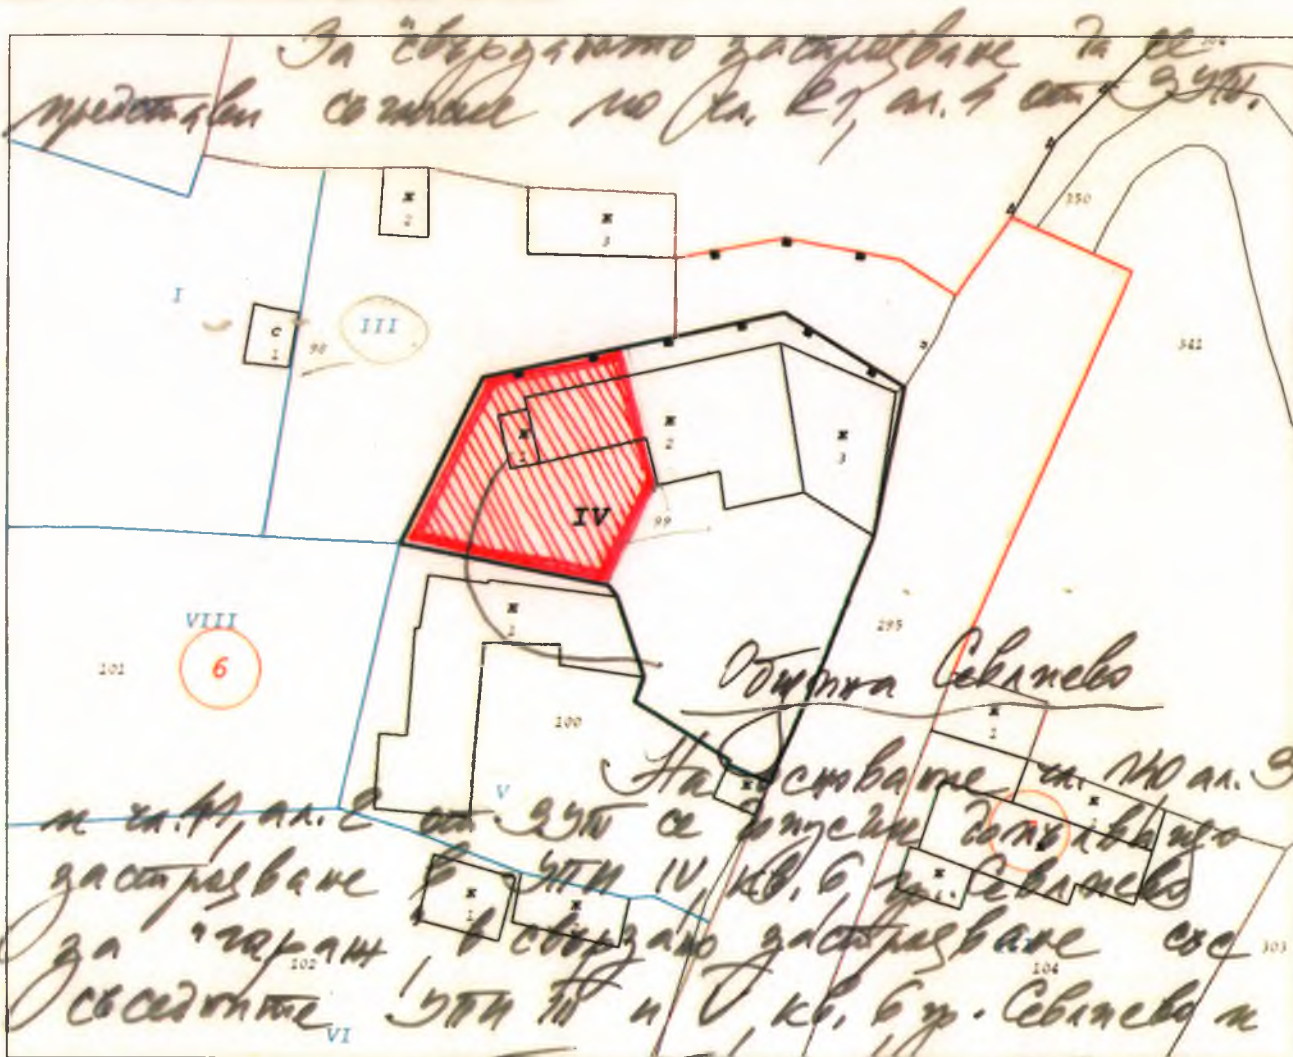 За "свързаното застрояване да се
представи съгласие по чл. 21, ал. 4 от ЗУТ.
350
ж
2
ж
3
I
III
с
1
98
341
ж
1
ж
2
ж
3
IV
99
ж
1
VIII
101
6
295
100
Община Севлиево
ж
1
На основание чл. 140 ал. 3
V
и чл. 41, ал. 2 от ЗУТ се допусне допълващо
застрояване в УПИ IV, кв. 6, гр. Севлиево
ж
1
ж
за "гараж" в свързано застрояване със
102
104
303
съседните УПИ III и V, кв. 6 гр. Севлиево и
VI